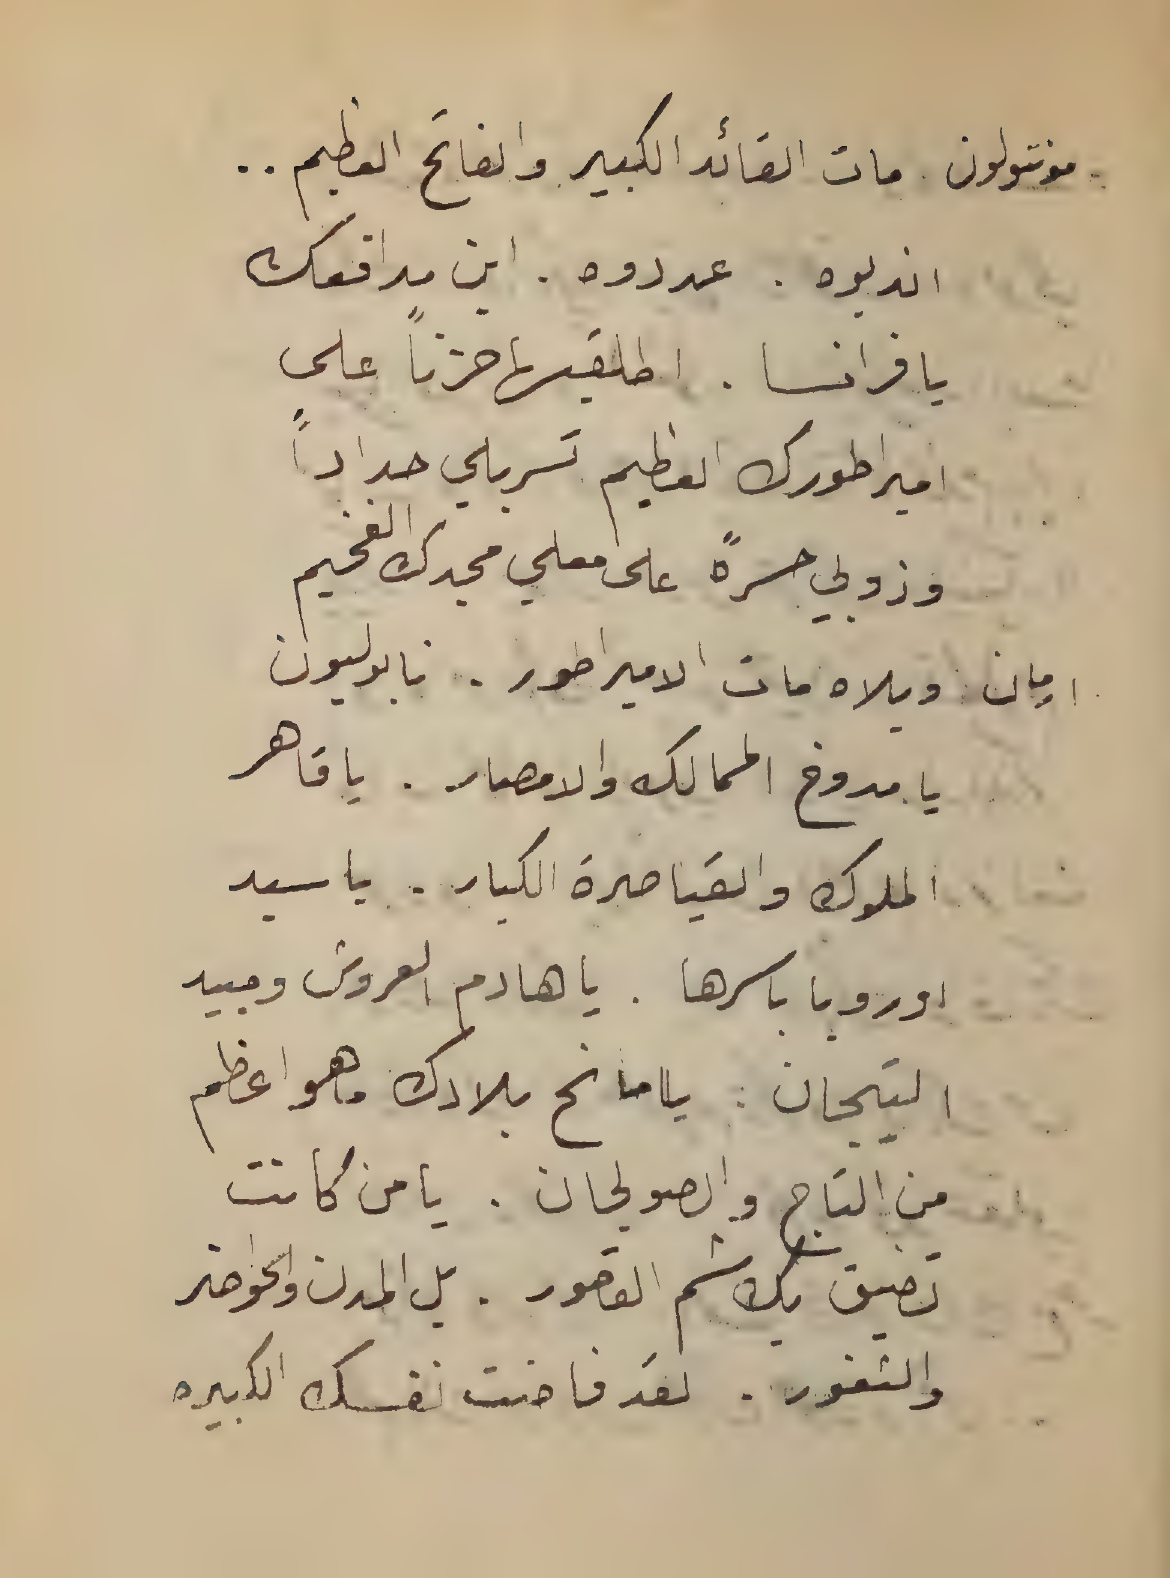 مونتولون. مات القائد الكبير والفاتح العظيم ..
اندبوه . عددوه . اين مدافعك
يا فرانسا . اطلقيها حزناً على
امبراطورك العظيم تسربلي حداداً
وذوبي حسرةً على معلي مجدك الفخيم
ويلاه مات الامبراطور . نابوليون
يا مدوخ الممالك والامصار . يا قاهر
الملوك والقياصرة الكبار . يا سيد
اوروبا باسرها . يا هادم العروش ومبيد
التيجان : يا مانح بلادك ما هو اعظم
من التاج والصولجان . يا من كانت
تضيق بك شم القصور . بل المدن والحواضر
والثغور . لقد فاضت نفسك الكبيره